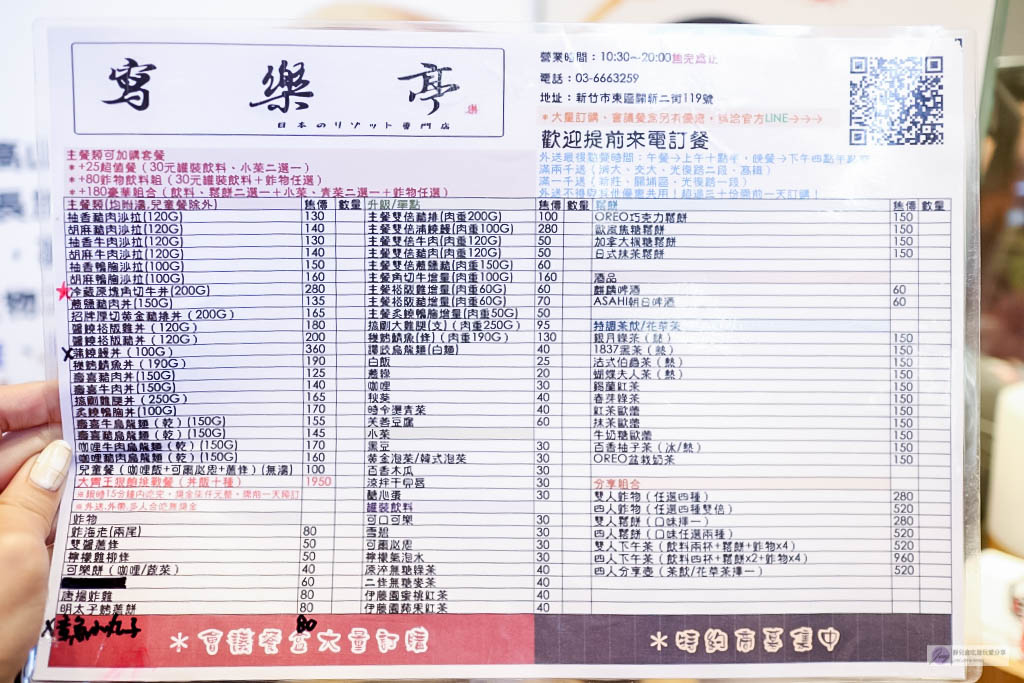 窩樂亭
日本のリゾット專門店
營業時間：10:30～20:00售完為止
電話：03-6663259
地址：新竹市東區關新二街119號
*大量訂購、會議餐盒另有優惠，請洽官方LINE→→→
歡迎提前來電訂餐
外送最後點餐時間：午餐→上午十點半，晚餐→下午四點半
主餐類可加購套餐
*+25超值餐（30元罐裝飲料、小菜二選一）
*+80炸物飲料組（30元罐裝飲料+炸物任選）
*+180豪華組合（飲料、鬆餅二選一+小菜、青菜二選一+炸物任選）
主餐類(均附湯,兒童餐除外) 售價 數量
柚香豬肉沙拉(120G) 130
胡麻豬肉沙拉(120G) 140
柚香牛肉沙拉(120G) 130
胡麻牛肉沙拉(120G) 140
柚香鴨胸沙拉(100G) 150
胡麻鴨胸沙拉(100G) 160
冷藏原塊角切牛丼(200G) 280
蔥鹽豬肉丼(150G) 135
招牌厚切黃金豬排丼（200G） 165
醬燒板腱雞丼（120G） 180
醬燒 豬丼（120G） 200
x蒲燒鰻丼（100G） 360
鯖魚丼（190G） 190
壽喜豬肉丼(150G) 130
壽喜牛肉丼(150G) 140
雞腿丼（250G） 165
炙燒鴨胸丼(100G) 170
壽喜牛烏龍麵（乾）(150G) 155
壽喜豬烏龍麵（乾）(150G) 145
咖哩牛肉烏龍麵（乾）(150G) 170
咖哩豬肉烏龍麵（乾）(150G) 160
兒童餐（咖哩飯+可爾必思+薯條）(無湯) 100
大胃王狠飽挑戰餐（丼飯十種） 1950
炸物
炸海老(兩尾) 80
雙醬薯條 50
檸檬雞柳條 50
可樂餅（咖哩/蔬菜） 40
60
唐揚炸雞 80
明太子 薯餅 80
x章魚小丸子 80
升級/單點 售價 數量
主餐雙倍豬排(肉重200G) 100
主餐雙倍蒲燒鰻(肉重100G) 280
主餐雙倍牛肉(肉重120G) 50
主餐雙倍豬肉(肉重120G) 50
主餐雙倍蔥鹽豬(肉重150G) 60
主餐角切牛增量(肉重100G) 160
主餐 雞增量(肉重60G) 60
主餐 豬增量(肉重60G) 70
主餐炙燒鴨胸增量(肉重50G) 50
大雞腿(支)（肉重250G） 95
鯖魚(條)（肉重190G） 130
讚岐烏龍麵(白麵) 40
白飯 25
蔥綠 20
咖哩 30
秋葵 40
時令燙青菜 40
芙蓉豆腐 60
小菜
黑豆 30
黃金泡菜/韓式泡菜 30
百香木瓜 30
涼拌干 絲 30
糖心蛋 30
罐裝飲料
可口可樂 30
雪碧 30
可爾必思 30
檸檬氣泡水 30
冷萃無糖綠茶 40
二條無糖麥茶 40
伊藤園蜜桃紅茶 40
伊藤園蘋果紅茶 40
鬆餅 售價 數量
OREO巧克力鬆餅 150
歐風焦糖鬆餅 150
加拿大楓糖鬆餅 150
日式抹茶鬆餅 150
酒品
麒麟啤酒 60
ASAHI朝日啤酒 60
特調茶飲/花草茶
銀月綠茶（熱） 150
1837黑茶（熱） 150
法式伯爵茶（熱） 150
蝴蝶夫人茶（熱） 150
錫蘭紅茶 150
春芽綠茶 150
紅茶歐蕾 150
抹茶歐蕾 150
牛奶糖歐蕾 150
百香柚子茶（冰/熱） 150
OREO盆栽奶茶 150
分享組合
雙人炸物（任選四種） 280
四人炸物（任選四種雙倍） 520
雙人鬆餅（口味擇一） 280
四人鬆餅（口味任選兩種） 520
雙人下午茶（飲料兩杯+鬆餅+炸物x4） 520
四人下午茶（飲料四杯+鬆餅x2+炸物x4） 960
四人分享壺（茶飲/花草茶擇一） 520
*會議餐盒大量訂購
*特約商募集中